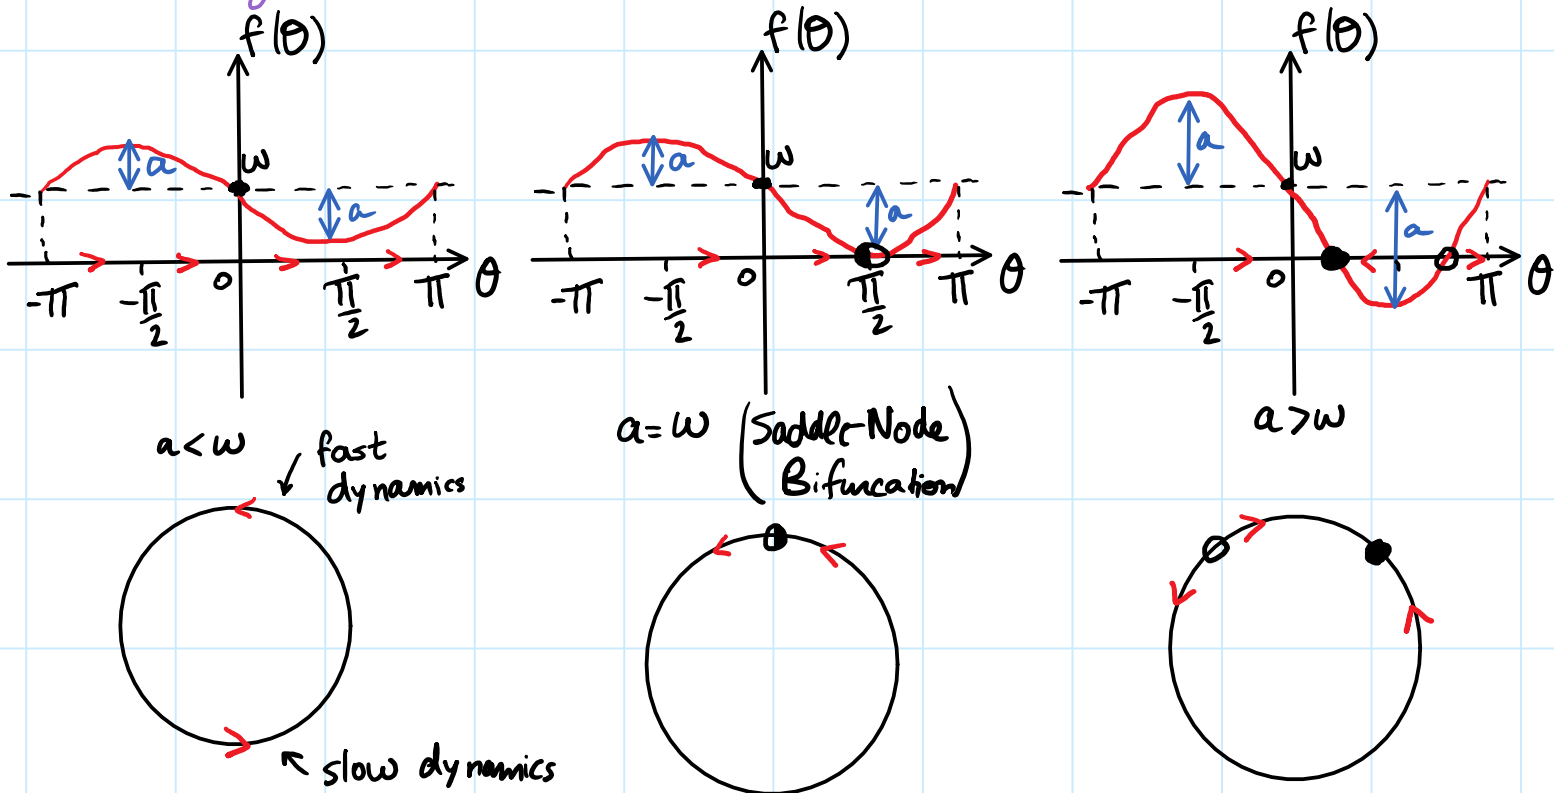 f(θ)
ω
a
a
-π
-π/2
0
π/2
π
θ
a < ω
fast
dynamics
slow dynamics
f(θ)
ω
a
a
-π
-π/2
0
π/2
π
θ
a = ω (Saddle-Node
Bifurcation)
f(θ)
ω
a
a
-π
-π/2
0
π
θ
a > ω